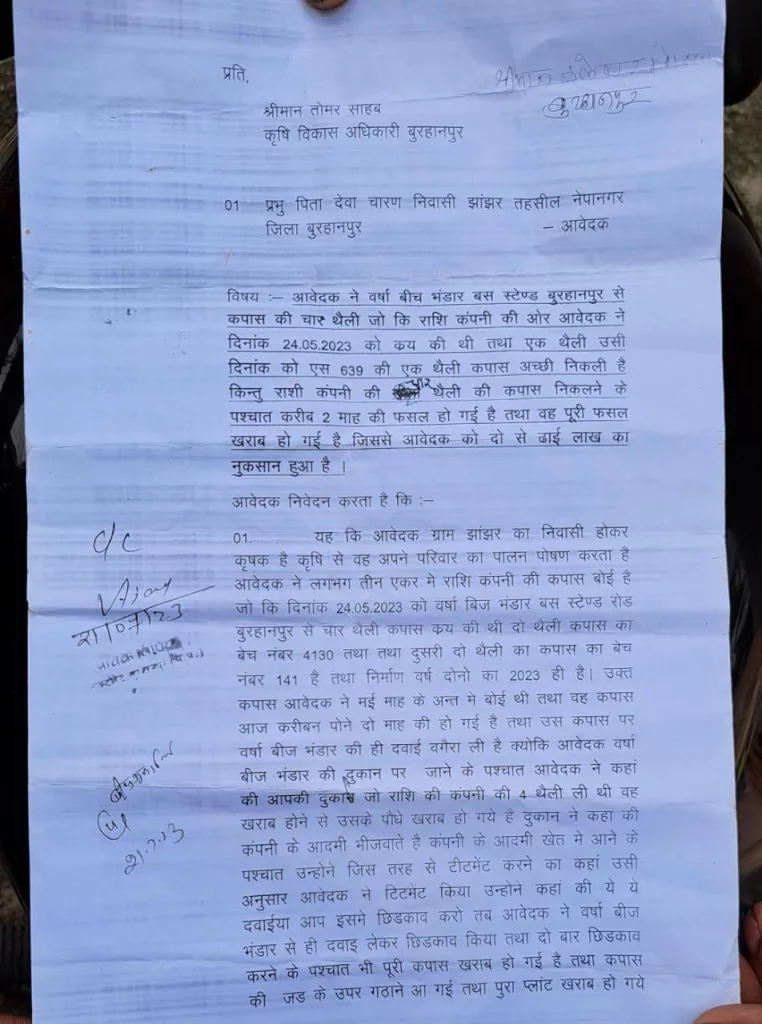 प्रति,
श्रीमान
बुरहानपुर
श्रीमान तोमर साहब
कृषि विकास अधिकारी बुरहानपुर
01 प्रभु पिता देवा चारण निवासी झांझर तहसील नेपानगर
जिला बुरहानपुर – आवेदक
विषय :– आवेदक ने वर्षा बीच भंडार बस स्टेण्ड बुरहानपुर से
कपास की चार थैली जो कि राशि कंपनी की ओर आवेदक ने
दिनांक 24.05.2023 को कय की थी तथा एक थैली उसी
दिनांक को एस 639 की एक थैली कपास अच्छी निकली है
किन्तु राशी कंपनी की चार थैली की कपास निकलने के
पश्चात करीब 2 माह की फसल हो गई है तथा वह पूरी फसल
खराब हो गई है जिससे आवेदक को दो से ढाई लाख का
नुकसान हुआ है ।
आवेदक निवेदन करता है कि :–
01. यह कि आवेदक ग्राम झांझर का निवासी होकर
कृषक है कृषि से वह अपने परिवार का पालन पोषण करता है
आवेदक ने लगभग तीन एकर मे राशि कंपनी की कपास बोई है
जो कि दिनांक 24.05.2023 को वर्षा बिज भंडार बस स्टेण्ड रोड
बुरहानपुर से चार थैली कपास कय की थी दो थैली कपास का
बेच नंबर 4130 तथा तथा दुसरी दो थैली का कपास का बेच
नंबर 141 है तथा निर्माण वर्ष दोनो का 2023 ही है। उक्त
कपास आवेदक ने मई माह के अन्त मे बोई थी तथा वह कपास
आज करीबन पोने दो माह की हो गई है तथा उस कपास पर
वर्षा बीज भंडार की ही दवाई वगैरा ली है क्योकि आवेदक वर्षा
बीज भंडार की दुकान पर जाने के पश्चात आवेदक ने कहां
की आपकी दुकान जो राशि की कंपनी की 4 थैली ली थी वह
खराब होने से उसके पौधे खराब हो गये है दुकान ने कहा की
कंपनी के आदमी भीजवाते है कंपनी के आदमी खेत मे आने के
पश्चात उन्होने जिस तरह से टीटमेंट करने का कहां उसी
अनुसार आवेदक ने टिटमेंट किया उन्होने कहां की ये ये
दवाईया आप इसमे छिडकाव करो तब आवेदक ने वर्षा बीज
भंडार से ही दवाइ लेकर छिडकाव किया तथा दो बार छिडकाव
करने के पश्चात भी पूरी कपास खराब हो गई है तथा कपास
की जड के उपर गठाने आ गई तथा पुरा प्लांट खराब हो गये
c/c
21/07/23
21.7.23